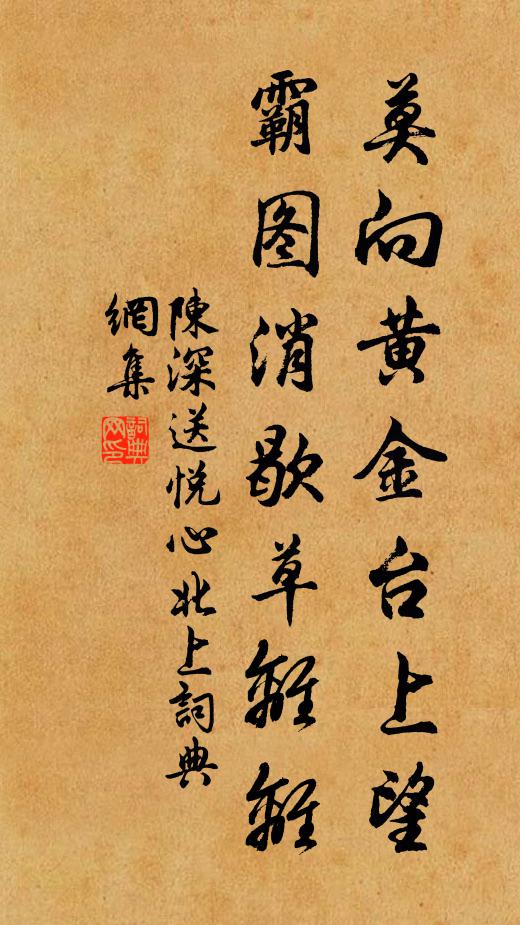 莫向黄金台上望
霸图消歇草離離
陳深送悦心北上詞典
網集
詞典
网印